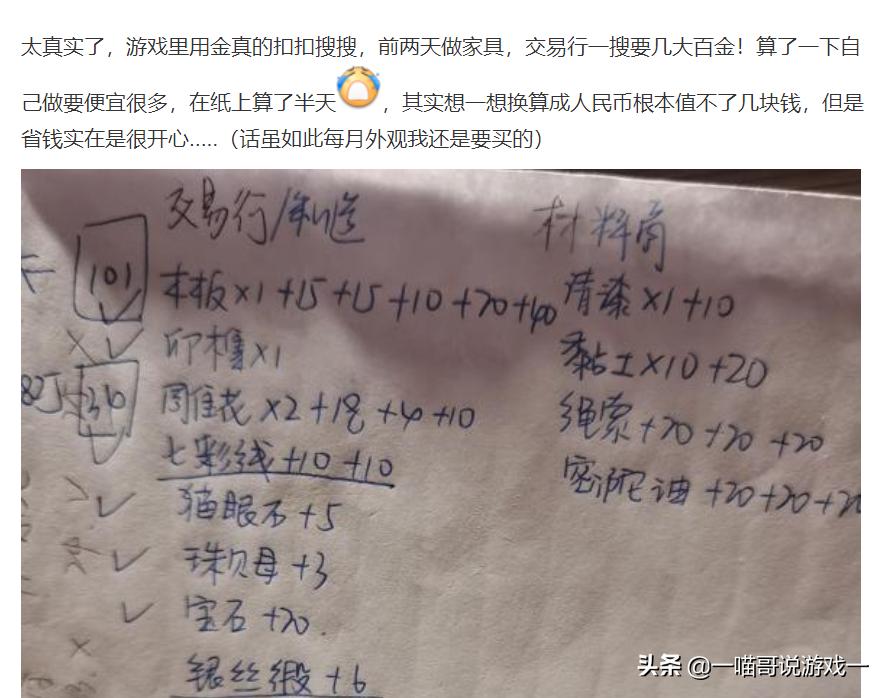 太真实了，游戏里用金真的扣扣搜搜，前两天做家具，交易行一搜要几大百金！算了一下自
己做要便宜很多，在纸上算了半天，其实想一想换算成人民币根本值不了几块钱，但是
省钱实在是很开心.....（话虽如此每月外观我还是要买的）
交易行/制造
材料商
101
木板×1+15+15+10+20+40
清漆×1+10
×1
黏土×10+20
36
雕花×2+18+4+10
绳索+20+20+20
七彩线+10+10
密陀油+20+20+
猫眼石+5
珠贝母+3
宝石+20
银丝缎+6
头条 @一喵哥说游戏一